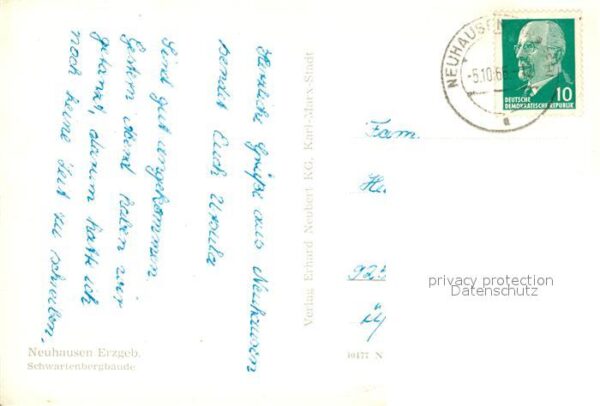 Herzliche Grüße aus Neuhausen
sendet Euch Ursula
Sind gut angekommen.
Gestern Abend haben wir
getanzt, darum hatte ich
noch keine Zeit zu schreiben.
Neuhausen Erzgeb.
Schwartenbergbaude
Verlag Erhard Neubert KG, Karl-Marx-Stadt
10477 N
NEUHAUSEN
-5.10.66
DEUTSCHE
DEMOKRATISCHE REPUBLIK
10
Fam.
He.
923
privacy protection
Datenschutz